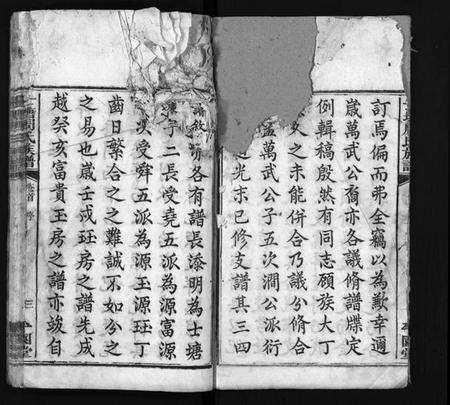 訂焉偏而弗全竊以為歉幸邇
歲萬武公裔亦各議脩譜牒定
例輯稿殷然有同志顧族大丁
久之未能併合乃議分脩合
盖萬武公子五次澗公派衍
光末已修支譜其三四
各有譜長添明為士塘
二長受堯五派為源富源
次受舜五派為源玉源珏丁
齒日繁合之之難誠不如分之
之易也歲壬戌珏房之譜先成
越癸亥富貴玉房之譜亦竣自
卷首 序
三